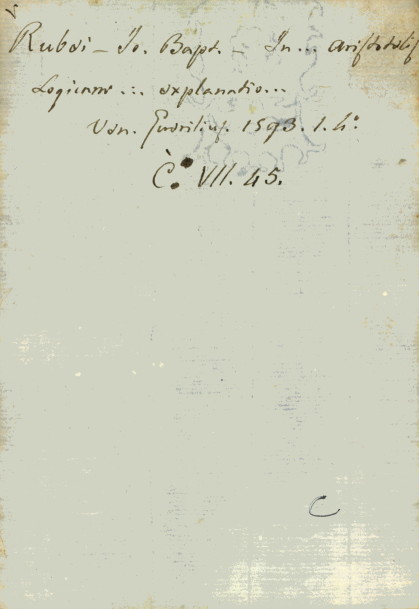 Rubei – Jo. Bapt. – In... Aristotelis
Logicam ... explanatio...
Ven. Guerilius. 1593. 1. 4°.
C. VII. 45.
C